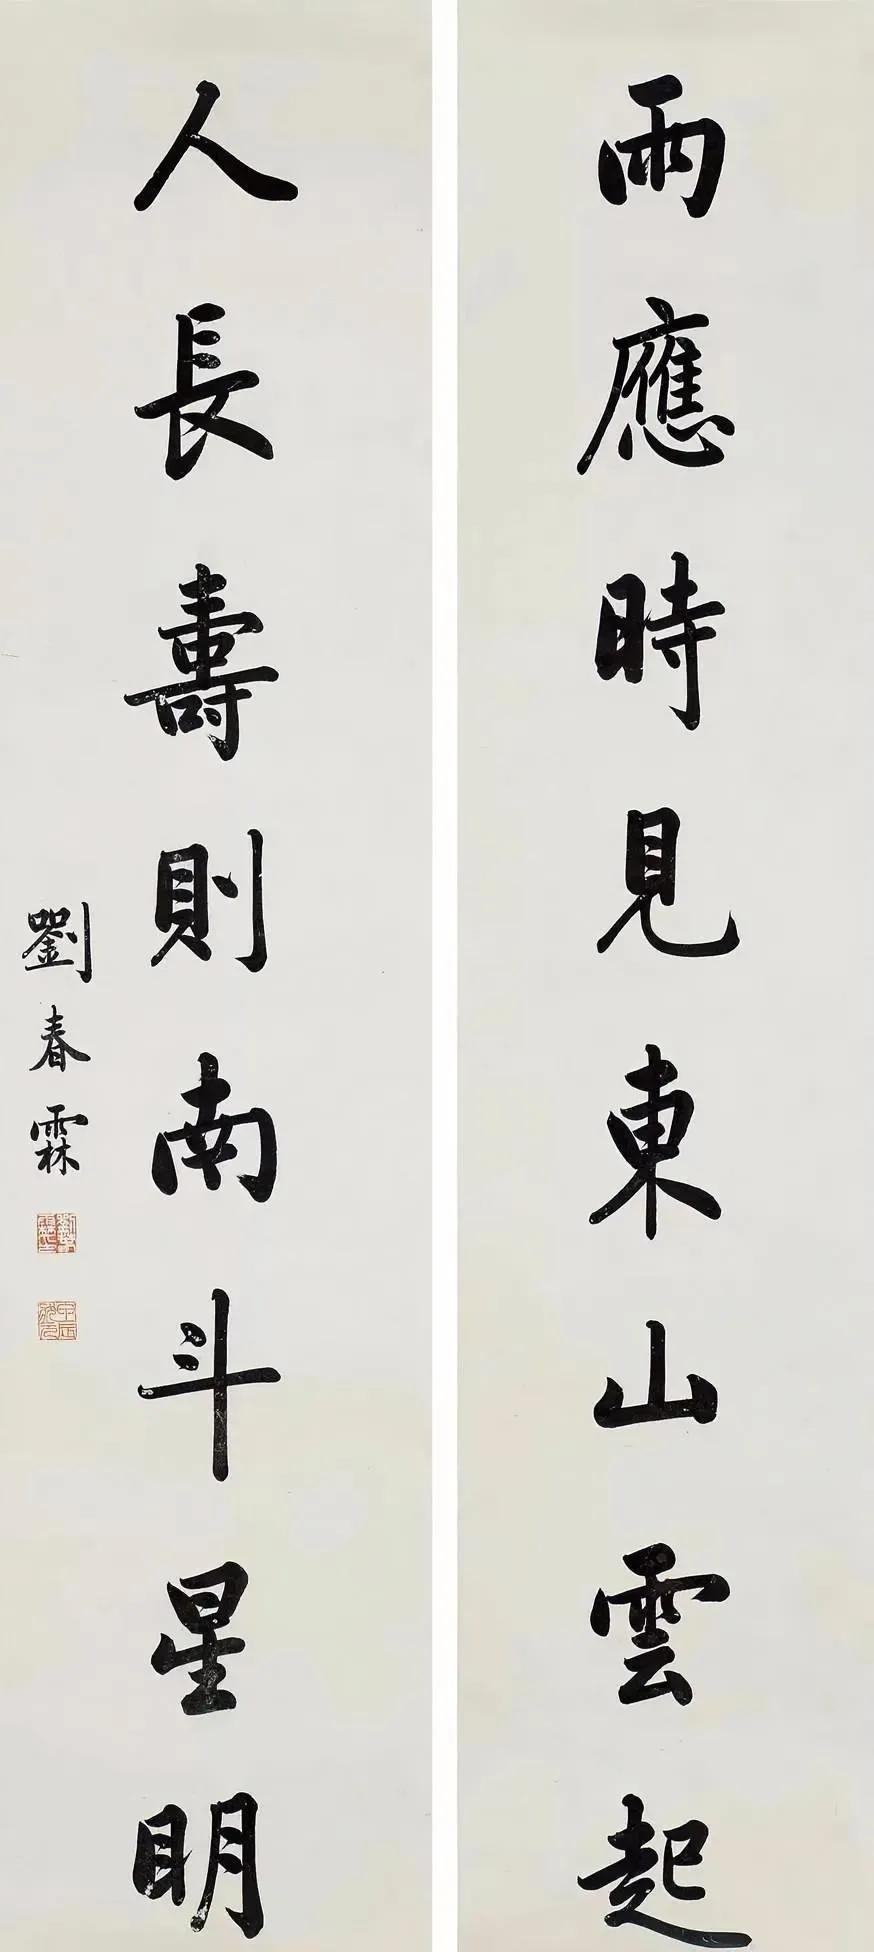 雨應時見東山雲起
人長壽則南斗星明
劉春霖